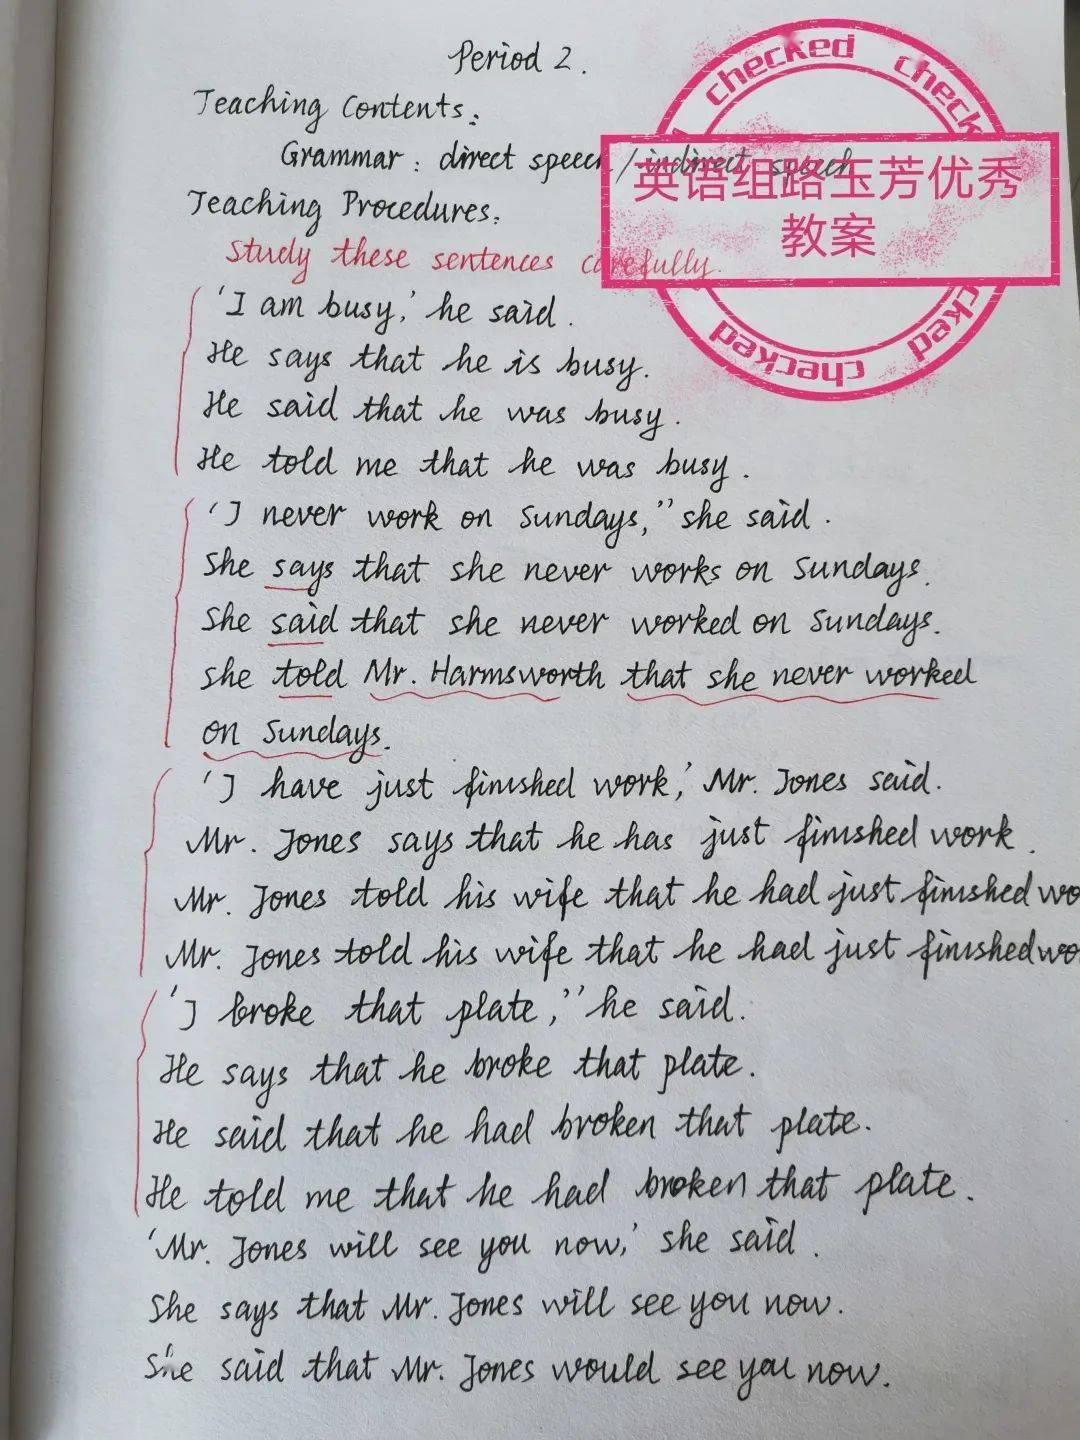 Period 2.
Teaching Contents:
Grammar: direct speech / indirect speech
Teaching Procedures:
Study these sentences carefully.
'I am busy,' he said.
He says that he is busy.
He said that he was busy.
He told me that he was busy.
'I never work on Sundays,'' she said.
She says that she never works on Sundays.
She said that she never worked on Sundays.
She told Mr. Harmsworth that she never worked
on Sundays.
'I have just finished work,' Mr. Jones said.
Mr. Jones says that he has just finished work.
Mr. Jones told his wife that he had just finished wo
Mr. Jones told his wife that he had just finished wo
'I broke that plate,'' he said.
He says that he broke that plate.
He said that he had broken that plate.
He told me that he had broken that plate.
'Mr. Jones will see you now,' she said.
She says that Mr. Jones will see you now.
She said that Mr. Jones would see you now.
checked checked
英语组路玉芳优秀
教案
checked checked